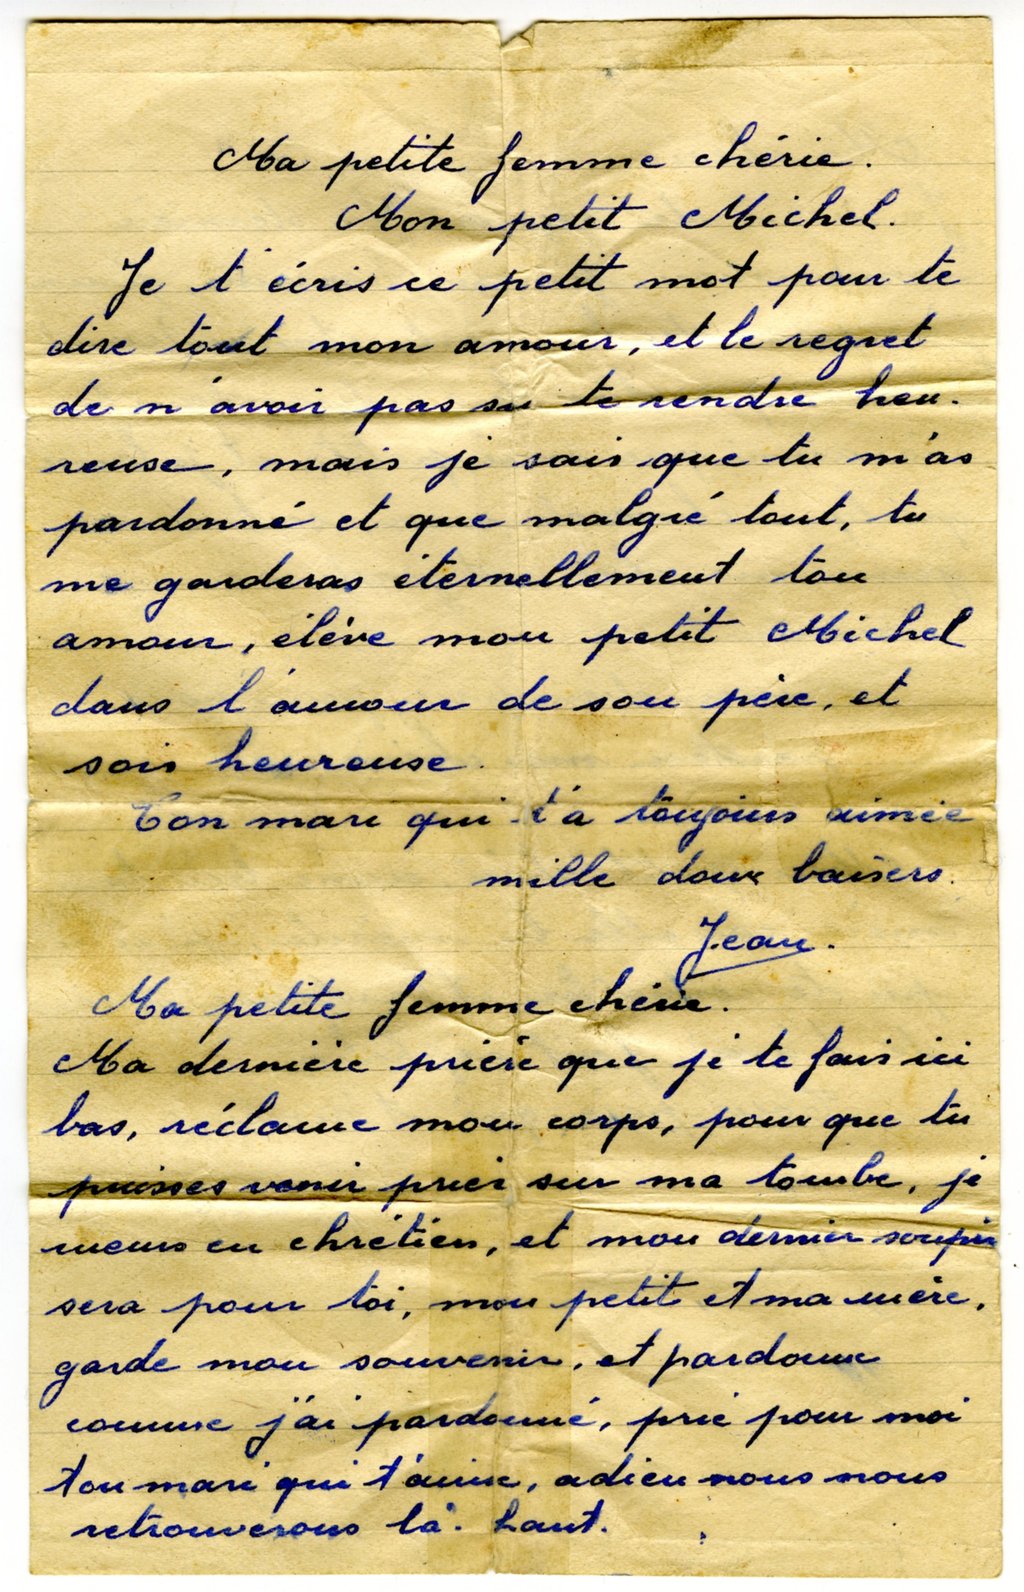 Ma petite femme chérie.
Mon petit Michel.
Je t'écris ce petit mot pour te
dire tout mon amour, et le regret
de n'avoir pas su te rendre heu-
reuse, mais je sais que tu m'as
pardonné et que malgré tout, tu
me garderas éternellement ton
amour, élève mon petit Michel
dans l'amour de son père, et
sois heureuse.
Ton mari qui t'a toujours aimée
mille doux baisers.
Jean.
Ma petite femme chérie.
Ma dernière prière que je te fais ici
bas, réclame mon corps, pour que tu
puisses venir prier sur ma tombe, je
meurs en chrétien, et mon dernier soupir
sera pour toi, mon petit et ma mère,
garde mon souvenir, et pardonne
comme j'ai pardonné, prie pour moi
ton mari qui t'aime, adieu nous nous
retrouverons là-haut.